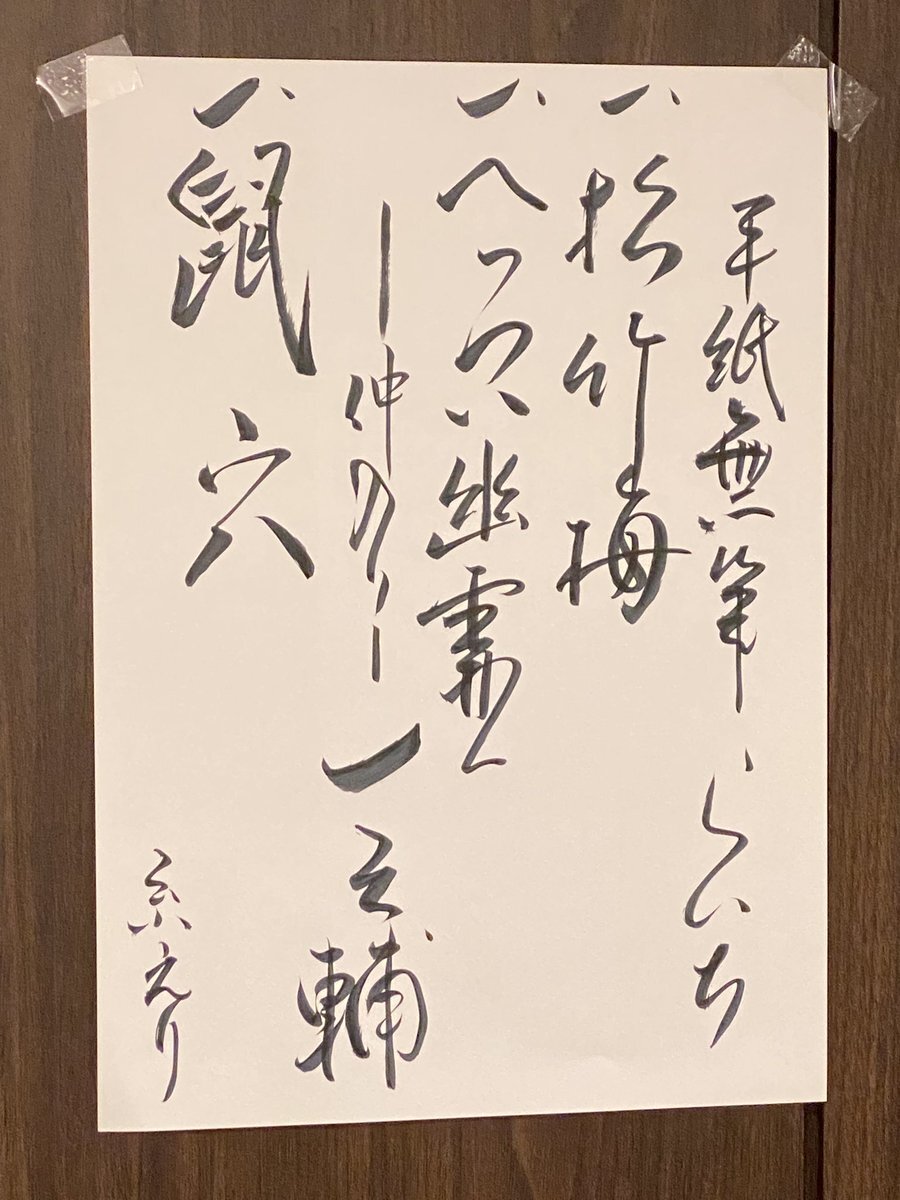 手紙無筆 らいち
一、松竹梅
一、へっつい幽霊
―仲入り― 一之輔
一、鼠穴
糸えり